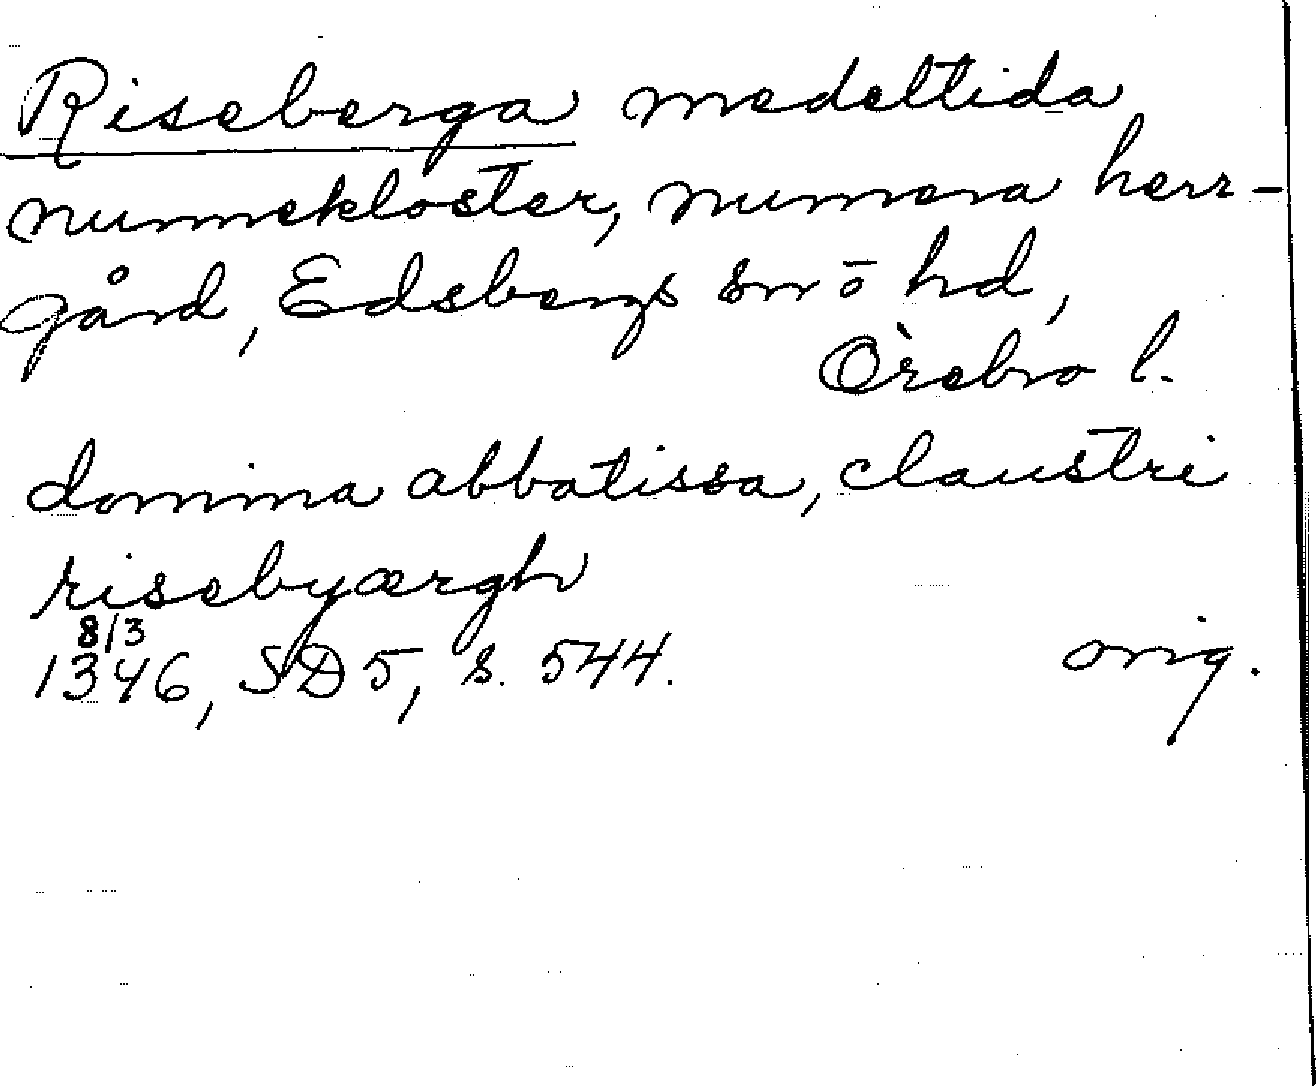 Riseberga medeltida
nunnekloster, numera herr-
gård, Edsbergs sn o hd,
Örebro l.
domina abbatissa, claustri
risebyærgh
8/3
1346, SD 5, s. 544. orig.